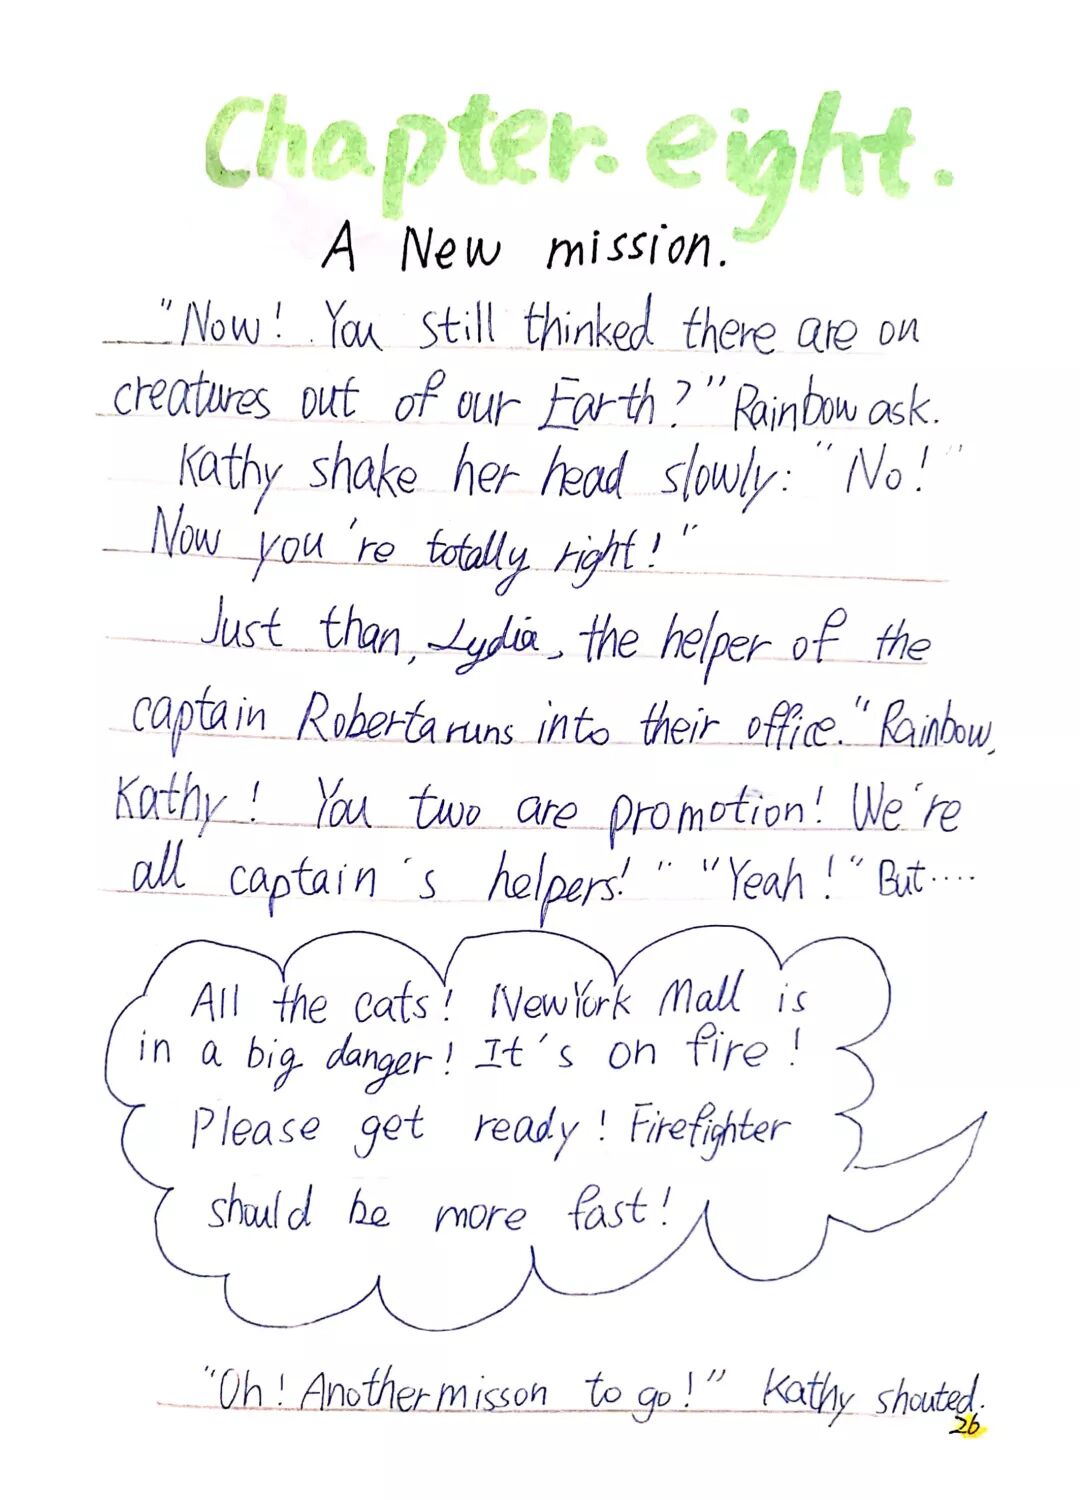 Chapter. eight.
A New mission.
"Now! You still thinked there are on
creatures out of our Earth?" Rainbow ask.
Kathy shake her head slowly: "No!"
Now you're totally right!"
Just than, Lydia, the helper of the
captain Roberta runs into their office. "Rainbow,
Kathy! You two are promotion! We're
all captain's helpers!" "Yeah!" But....
All the cats! New York Mall is
in a big danger! It's on fire!
Please get ready! Firefighter
should be more fast!
"Oh! Another misson to go!" Kathy shouted.
26